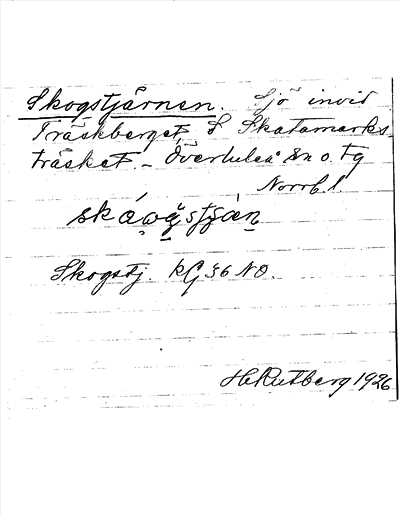 Skogstjärnen. Sjö invid
Träskberget, S Skatamarks
träsket. – Överluleå sn o. tg
Norrb. l.
Skogstj. kG 36 NO.
H Rutberg 1926